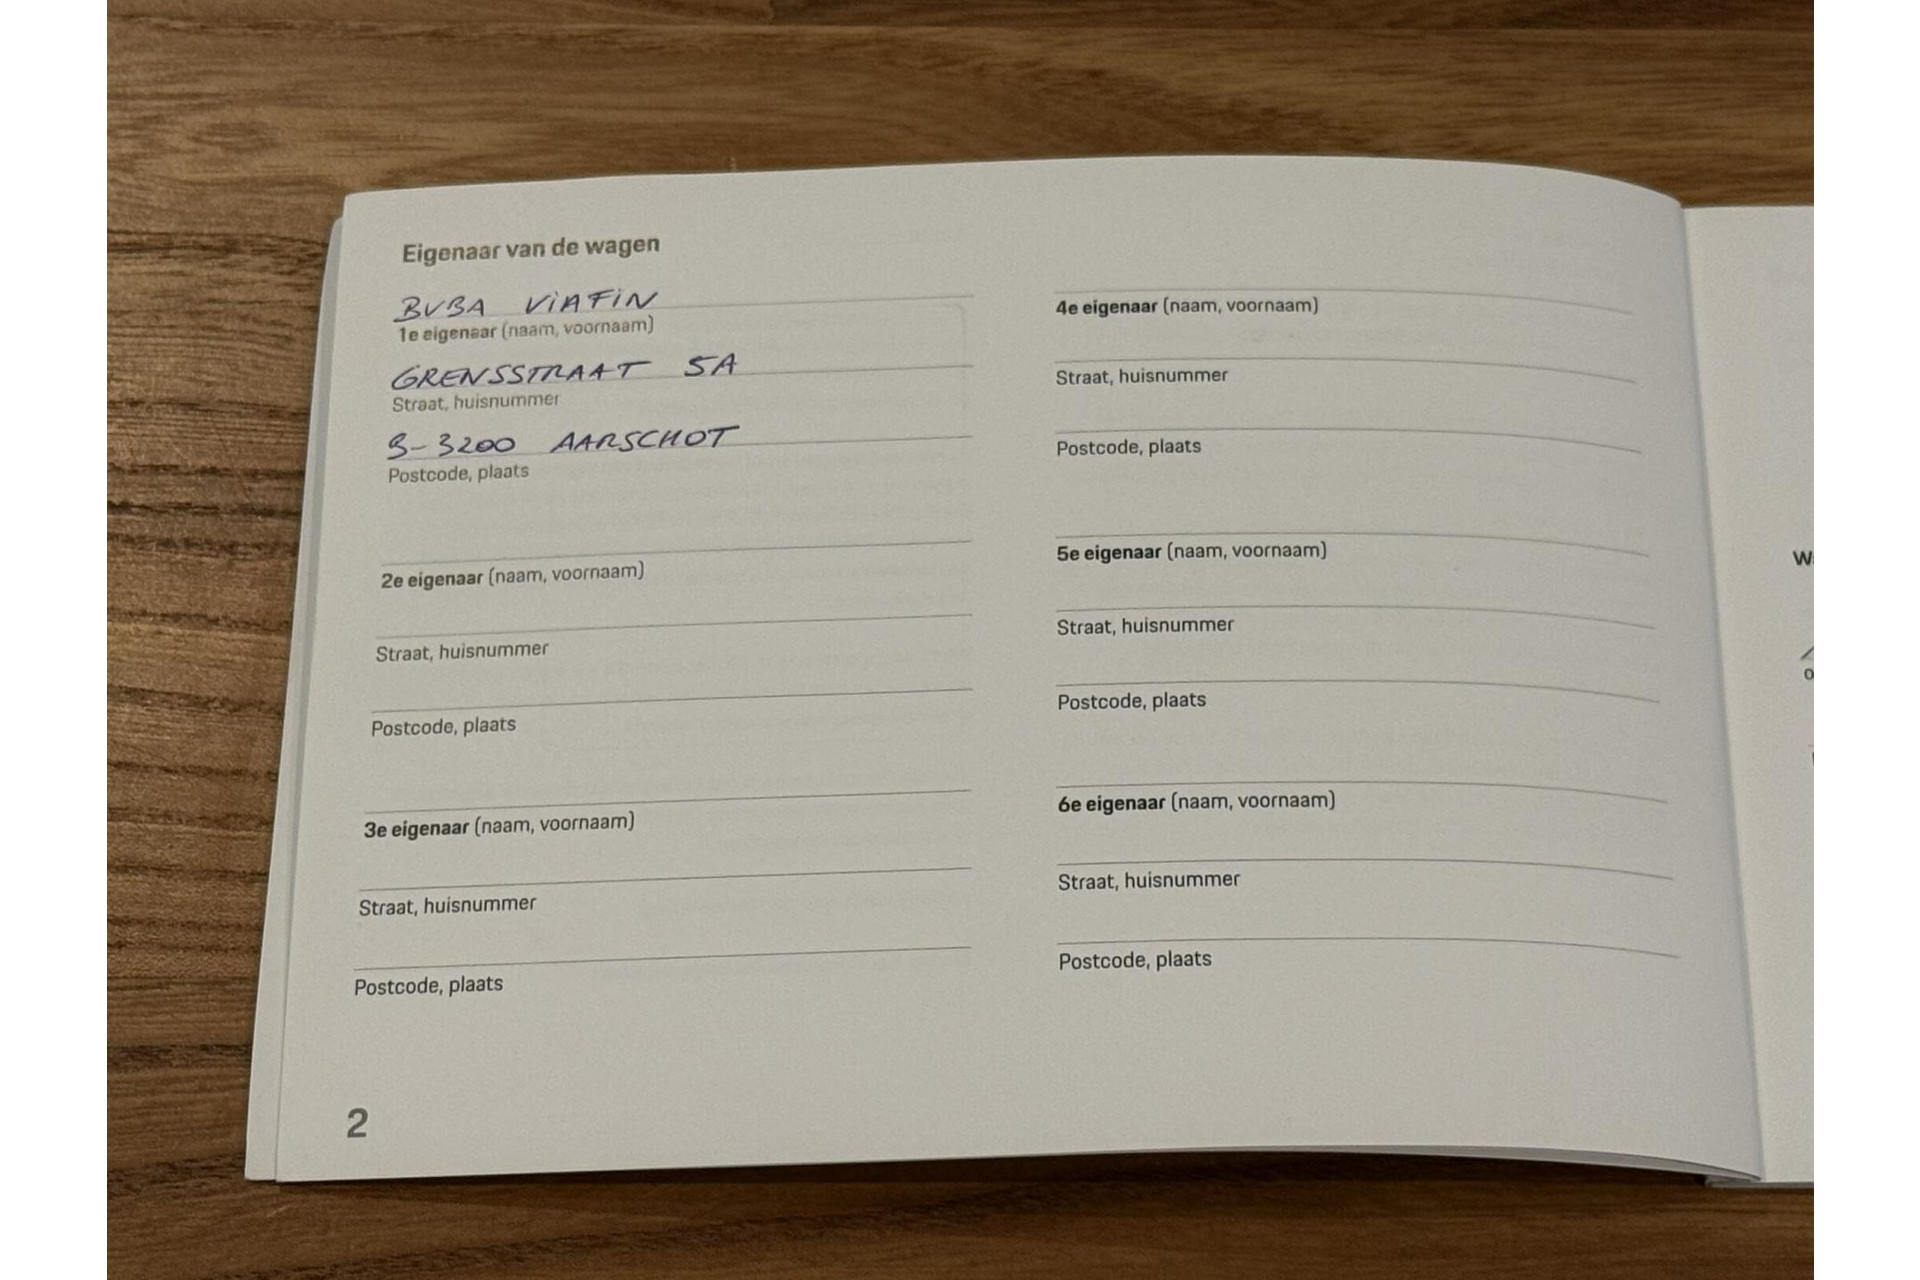 Eigenaar van de wagen
BVBA VIAFIN
1e eigenaar (naam, voornaam)
GRENSSTRAAT 5A
Straat, huisnummer
B-3200 AARSCHOT
Postcode, plaats
2e eigenaar (naam, voornaam)
Straat, huisnummer
Postcode, plaats
3e eigenaar (naam, voornaam)
Straat, huisnummer
Postcode, plaats
4e eigenaar (naam, voornaam)
Straat, huisnummer
Postcode, plaats
5e eigenaar (naam, voornaam)
Straat, huisnummer
Postcode, plaats
6e eigenaar (naam, voornaam)
Straat, huisnummer
Postcode, plaats
2